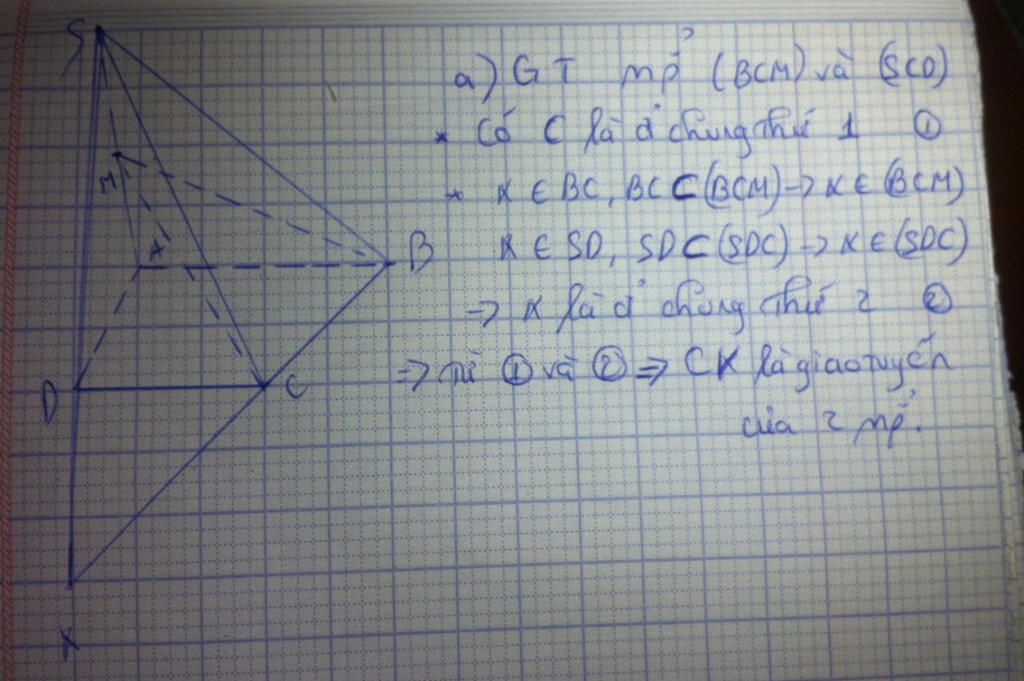 S
M
A
B
D
C
K
a) GT mp (BCM) và (SCD)
* Có C là đ' chung thứ 1 ①
* K ∈ BC, BC ⊂ (BCM) → K ∈ (BCM)
K ∈ SD, SD ⊂ (SDC) → K ∈ (SDC)
→ K là đ' chung thứ 2 ②
⇒ từ ① và ② ⇒ CK là giao tuyến
của 2 mp.